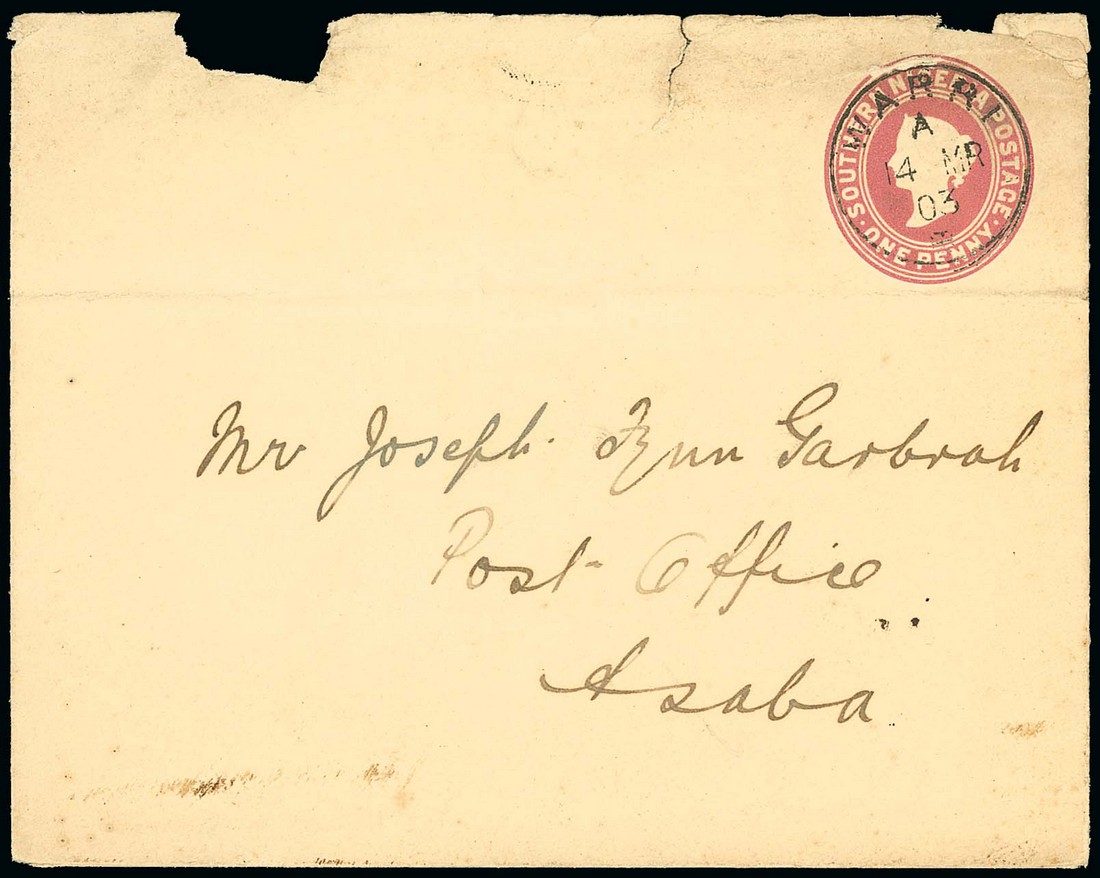 SOUTHERN NIGERIA POSTAGE
ONE PENNY
WARRI
A
14 MR
03
Mr Joseph Fynn Garbrah
Post Office
Asaba